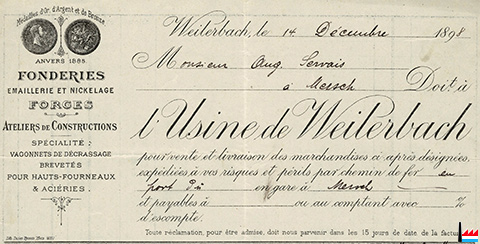 Médailles d'Or, d'Argent et de Bronze
ANVERS 1885.
FONDERIES
EMAILLERIE ET NICKELAGE
FORGES
ATELIERS DE CONSTRUCTIONS
SPÉCIALITÉ:
VAGONNETS DE DÉCRASSAGE
BREVETÉS
POUR HAUTS-FOURNEAUX
& ACIÉRIES.
Weilerbach, le 14 Décembre 1898
Monsieur Aug. Servais
à Mersch Doit à
l'Usine de Weilerbach
pour vente et livraison des marchandises ci après désignées,
expédiées à vos risques et périls par chemin de fer en
port dû en gare à Mersch
et payables à ou au comptant avec %
d'escompte.
Toute réclamation, pour être admise, doit nous parvenir dans les 15 jours de date de la factur